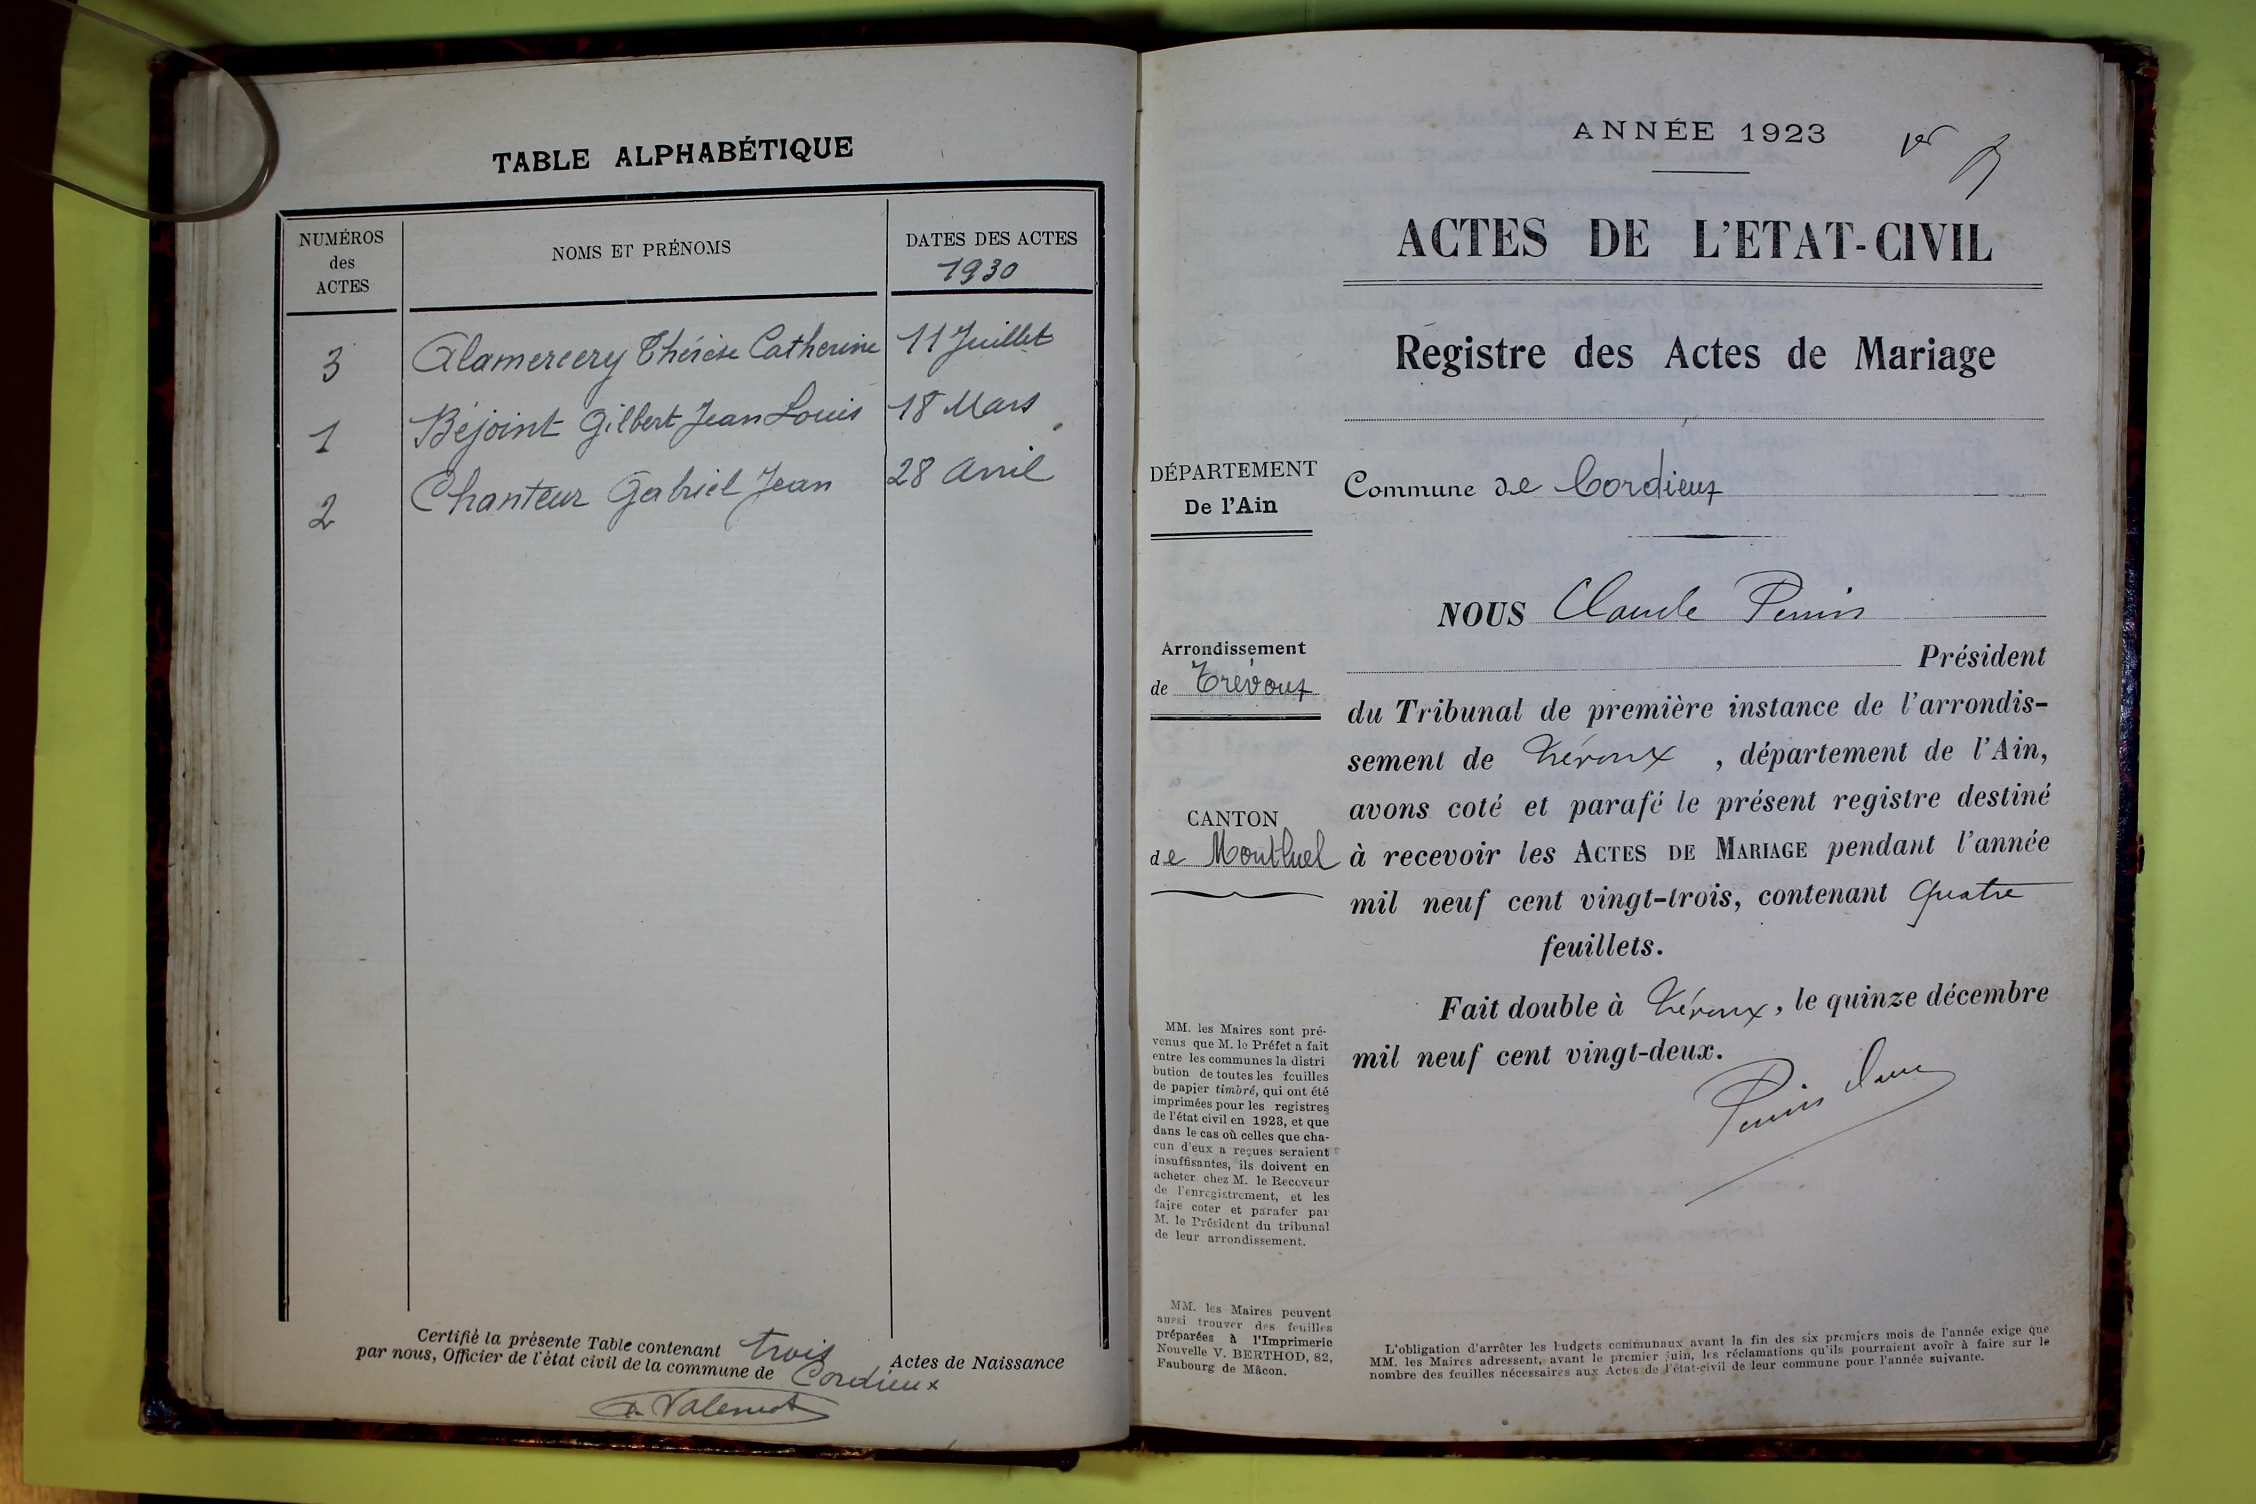 TABLE ALPHABÉTIQUE
NUMÉROS
des
ACTES
NOMS ET PRÉNOMS
DATES DES ACTES
1930
3 Alamercery Thérèse Catherine 11 Juillet
1 Béjoint Gilbert Jean Louis 18 Mars
2 Chanteur Gabriel Jean 28 Avril
Certifié la présente Table contenant trois Actes de Naissance
par nous, Officier de l'état civil de la commune de Cordieux
ANNÉE 1923
1er
ACTES DE L'ETAT-CIVIL
Registre des Actes de Mariage
DÉPARTEMENT
De l'Ain
Commune de Cordieux
NOUS Claude Perrin
Arrondissement
de Trévoux
Président
du Tribunal de première instance de l'arrondis-
sement de Trévoux, département de l'Ain,
avons coté et parafé le présent registre destiné
CANTON
de Montluel
à recevoir les ACTES DE MARIAGE pendant l'année
mil neuf cent vingt-trois, contenant quatre
feuillets.
Fait double à Trévoux, le quinze décembre
mil neuf cent vingt-deux.
MM. les Maires sont pré-
venus que M. le Préfet a fait
entre les communes la distri
bution de toutes les feuilles
de papier timbré, qui ont été
imprimées pour les registres
de l'état civil en 1923, et que
dans le cas où celles que cha-
cun d'eux a reçues seraient
insuffisantes, ils doivent en
acheter chez M. le Receveur
de l'enregistrement, et les
faire coter et parafer par
M. le Président du tribunal
de leur arrondissement.
MM. les Maires peuvent
aussi trouver des feuilles
préparées à l'Imprimerie
Nouvelle V. BERTHOD, 82,
Faubourg de Mâcon.
L'obligation d'arrêter les budgets communaux avant la fin des six premiers mois de l'année exige que
MM. les Maires adressent, avant le premier juin, les réclamations qu'ils pourraient avoir à faire sur le
nombre des feuilles nécessaires aux Actes de l'état-civil de leur commune pour l'année suivante.